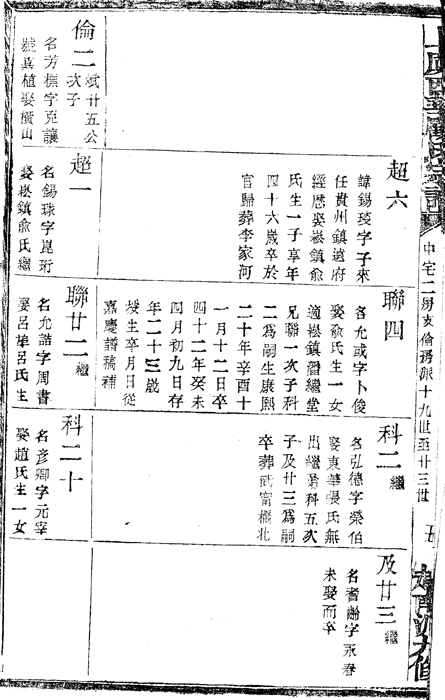 中宅二房支倫房派十九世至廿三世
五
超六
諱錫琰字子來
任貴州鎮遠府
經歷娶崧鎮俞
氏生一子享年
四十六歲卒於
官歸葬李家河
聯四
名允或字卜俊
娶俞氏生一女
適崧鎮繼堂
兄聯一次子科
二為嗣生康熙
二十年辛酉十
一月十二日卒
四十二年癸未
四月初九日存
年二十三歲
按生卒月日從
嘉慶譜稿補
科二繼
名弘德字榮伯
娶東華張氏無
出繼弟科五次
子及廿三為嗣
卒葬武甯橛北
及廿三繼
名耆齡字永春
未娶而卒
倫二
斌廿五公
次子
名芳櫵字克讓
號真植娶橫山
超一
名錫珠字崑珩
娶崧鎮俞氏繼
聯廿二繼
名允誥字周書
娶呂埠呂氏生
科二十
名彥卿字元宰
娶趙氏生一女